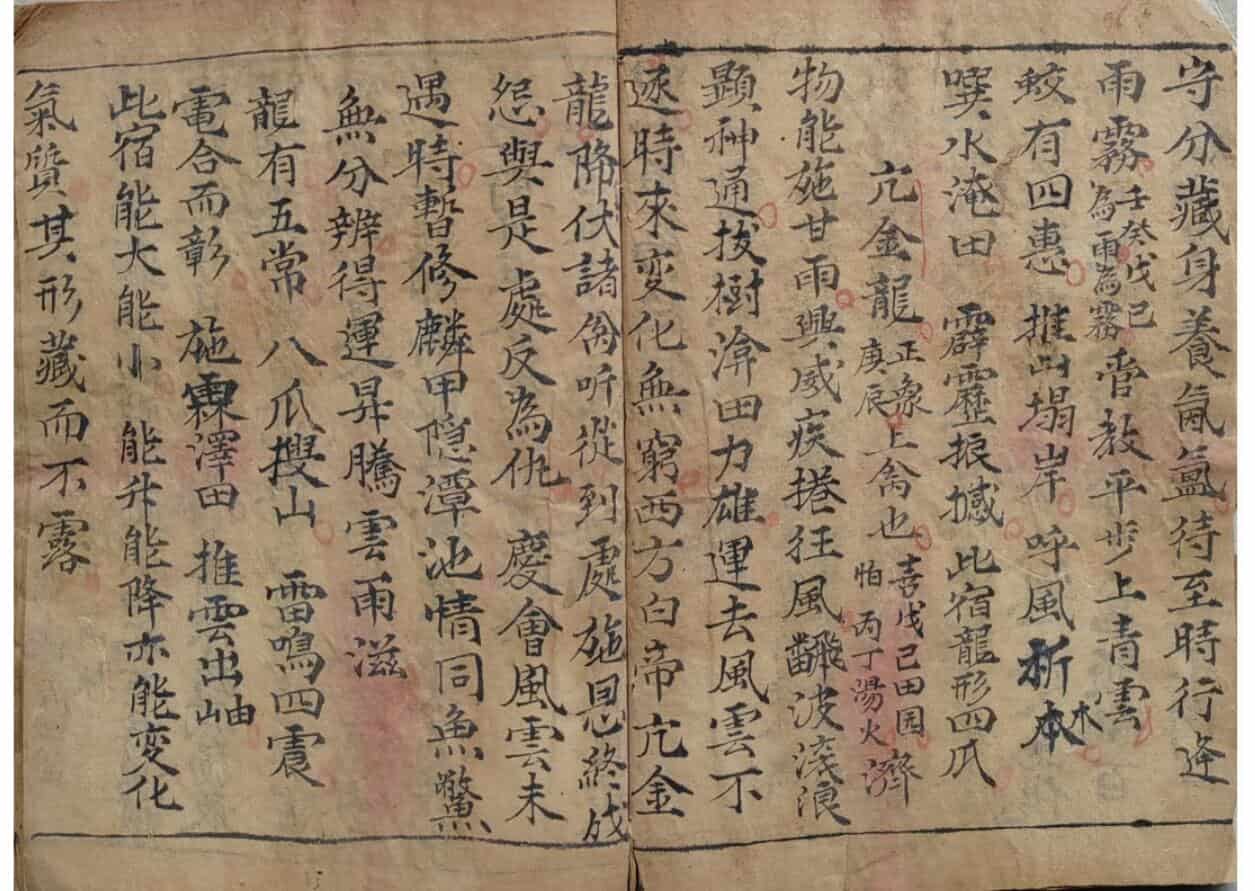 守分藏身養氤氳待至時行逢
雨霧壬癸戊己為雨為霧管教平步上青雲
蛟有四惠 推山塌岸 呼風折木
噀水淹田 霹靂振撼 此宿龍形四爪
亢金龍正象庚辰上禽也喜戊己田园濟怕丙丁湯火
物能施甘雨興威疾捲狂風翻波浅浪
顕神通拔樹渰田力雄運去風雲不
逐時來変化無窮西方白帝亢金
龍降伏諸禽听從到處施恩終成
怨與是處反為仇 慶會風雲未
遇時暫修麟甲隐潭池情同魚鱉
無分辨得運昇騰雲雨滋
龍有五常 八爪搜山 雷鳴四震
電合而彰 施霖澤田 推雲出岫
此宿能大能小 能升能降亦能变化
氣質其形藏而不露